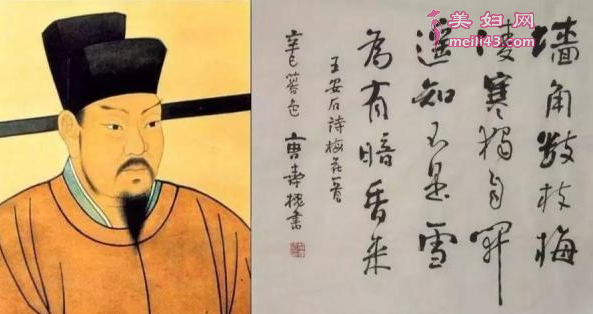 美妇网
meili43.com
墙角数枝梅
凌寒独自開
遥知不是雪
为有暗香来
王安石诗梅花一首
辛巳 書